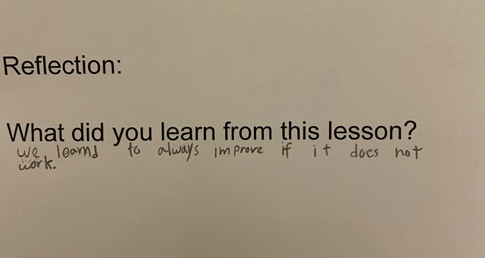 Reflection:
What did you learn from this lesson?
we learnd to always improve if it does not
work.